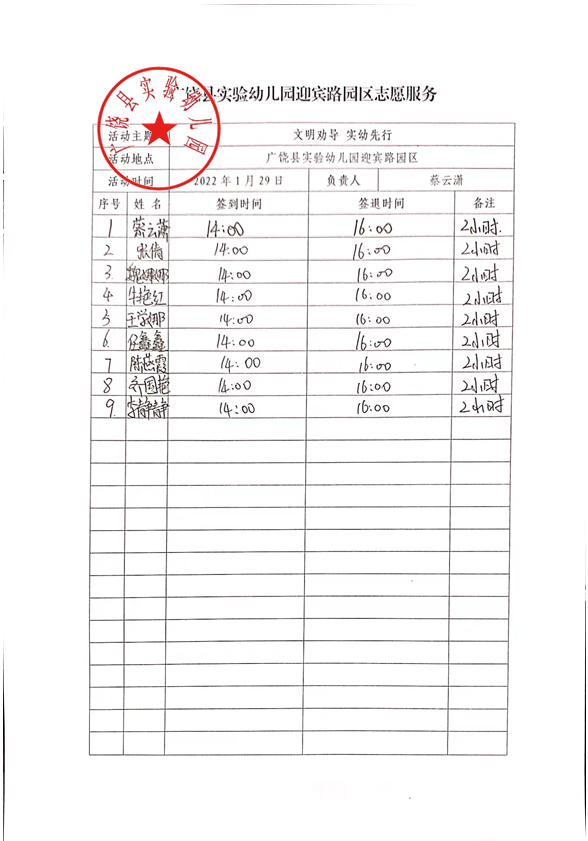 广饶县实验幼儿园
广饶县实验幼儿园迎宾路园区志愿服务
活动主题 文明劝导 实幼先行
活动地点 广饶县实验幼儿园迎宾路园区
活动时间 2022年1月29日 负责人 蔡云潇
序号 姓名 签到时间 签退时间 备注
1 蔡云潇 14:00 16:00 2小时.
2 张倩 14:00 16:00 2小时
3. 魏娜娜 14:00 16:00 2小时
4 牛艳红 14:00 16:00 2小时
5 王学娜 14:00 16:00 2小时
6. 任鑫鑫 14:00 16:00 2小时
7 陈燕霞 14:00 16:00 2小时
8 齐国艳 14:00 16:00 2小时
9. 李静静 14:00 16:00 2小时